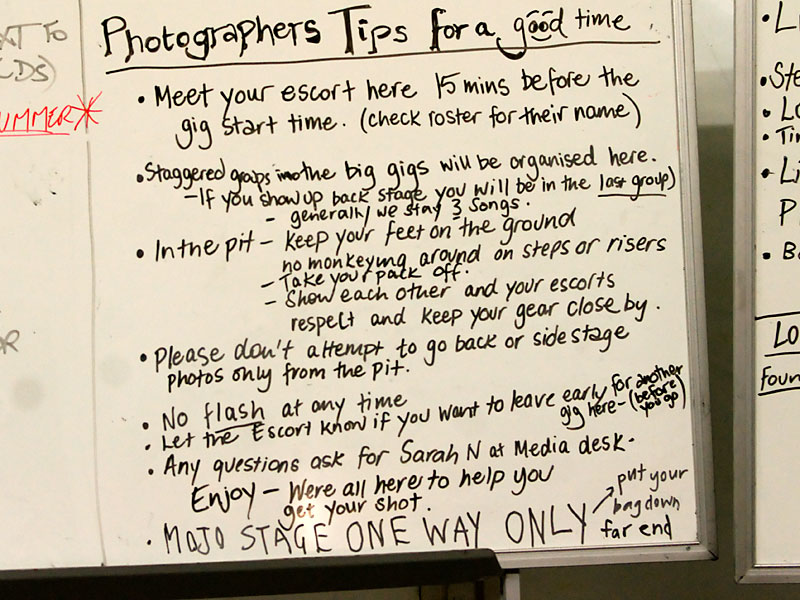 Photographers Tips for a good time
• Meet your escort here 15 mins before the
gig start time. (check roster for their name)
• Staggered groups into the big gigs will be organised here.
- If you show up back stage you will be in the last group)
- generally we stay 3 songs.
• In the pit - keep your feet on the ground
no monkeying around on steps or risers
- Take your pack off.
- Show each other and your escorts
respect and keep your gear close by.
• Please don't attempt to go back or side stage
photos only from the pit.
• No flash at any time
• Let the Escort know if you want to leave early for another
gig here - (before
you go)
• Any questions ask for Sarah N at Media desk.
Enjoy - Were all here to help you
get your shot.
• MOJO STAGE ONE WAY ONLY
put your
bag down
far end
TO
LDS)
UMMER*
OR
• L
• Ste
• Lo
• Tim
• Li
P
• B
LO
Foun